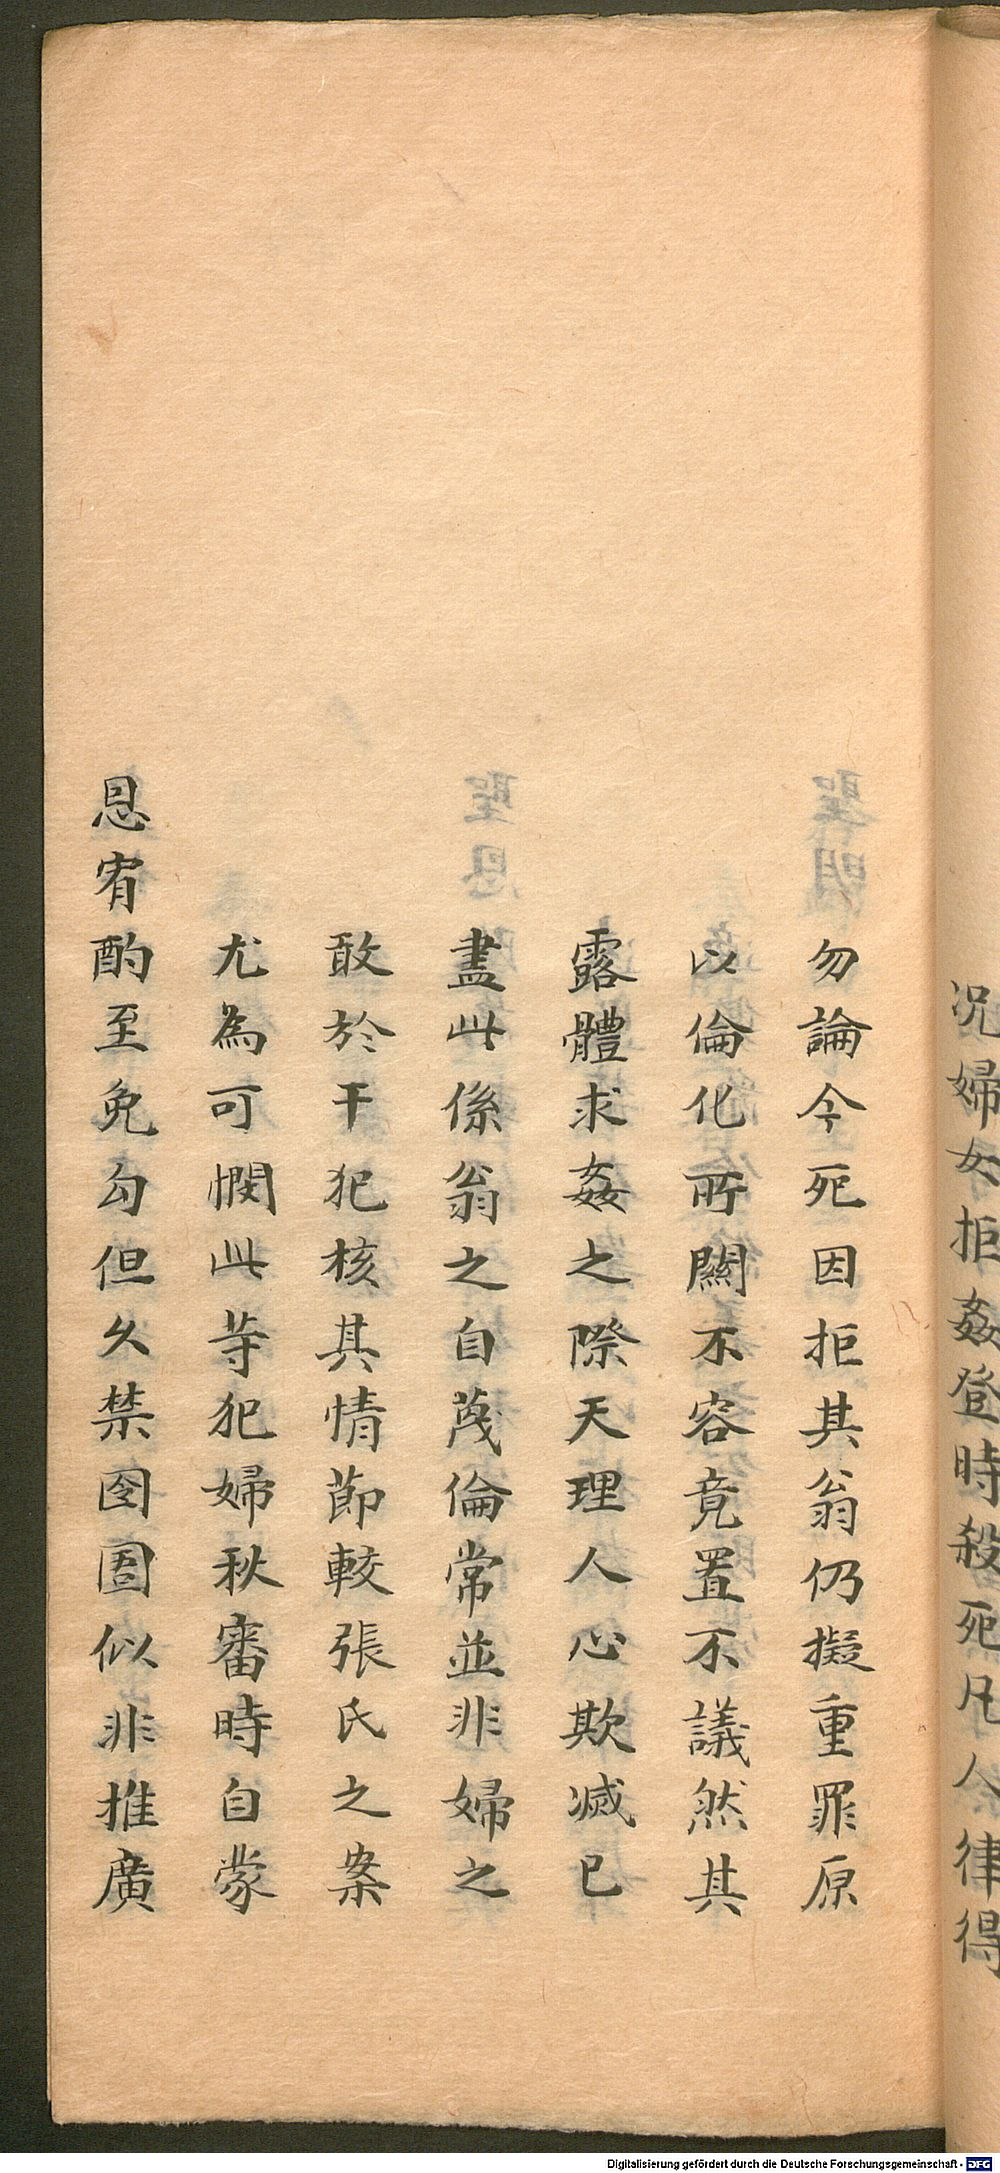 况婦女拒姦登時殺死凡人律得
勿論今死因拒其翁仍擬重罪原
以倫化所關不容竟置不議然其
露體求姦之際天理人心欺滅已
盡此係翁之自蔑倫常並非婦之
敢於干犯核其情節較張氏之案
尤為可憫此等犯婦秋審時自蒙
恩宥酌至免勾但久禁囹圄似非推廣
Digitalisierung gefördert durch die Deutsche Forschungsgemeinschaft - DFG